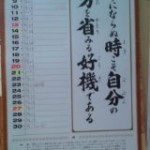 にならぬ時こそ自分の
を省みる好機である
10
11
12
13
14
15
16
17
18
19
20
21
22
23
24
25
26
27
28
29
30